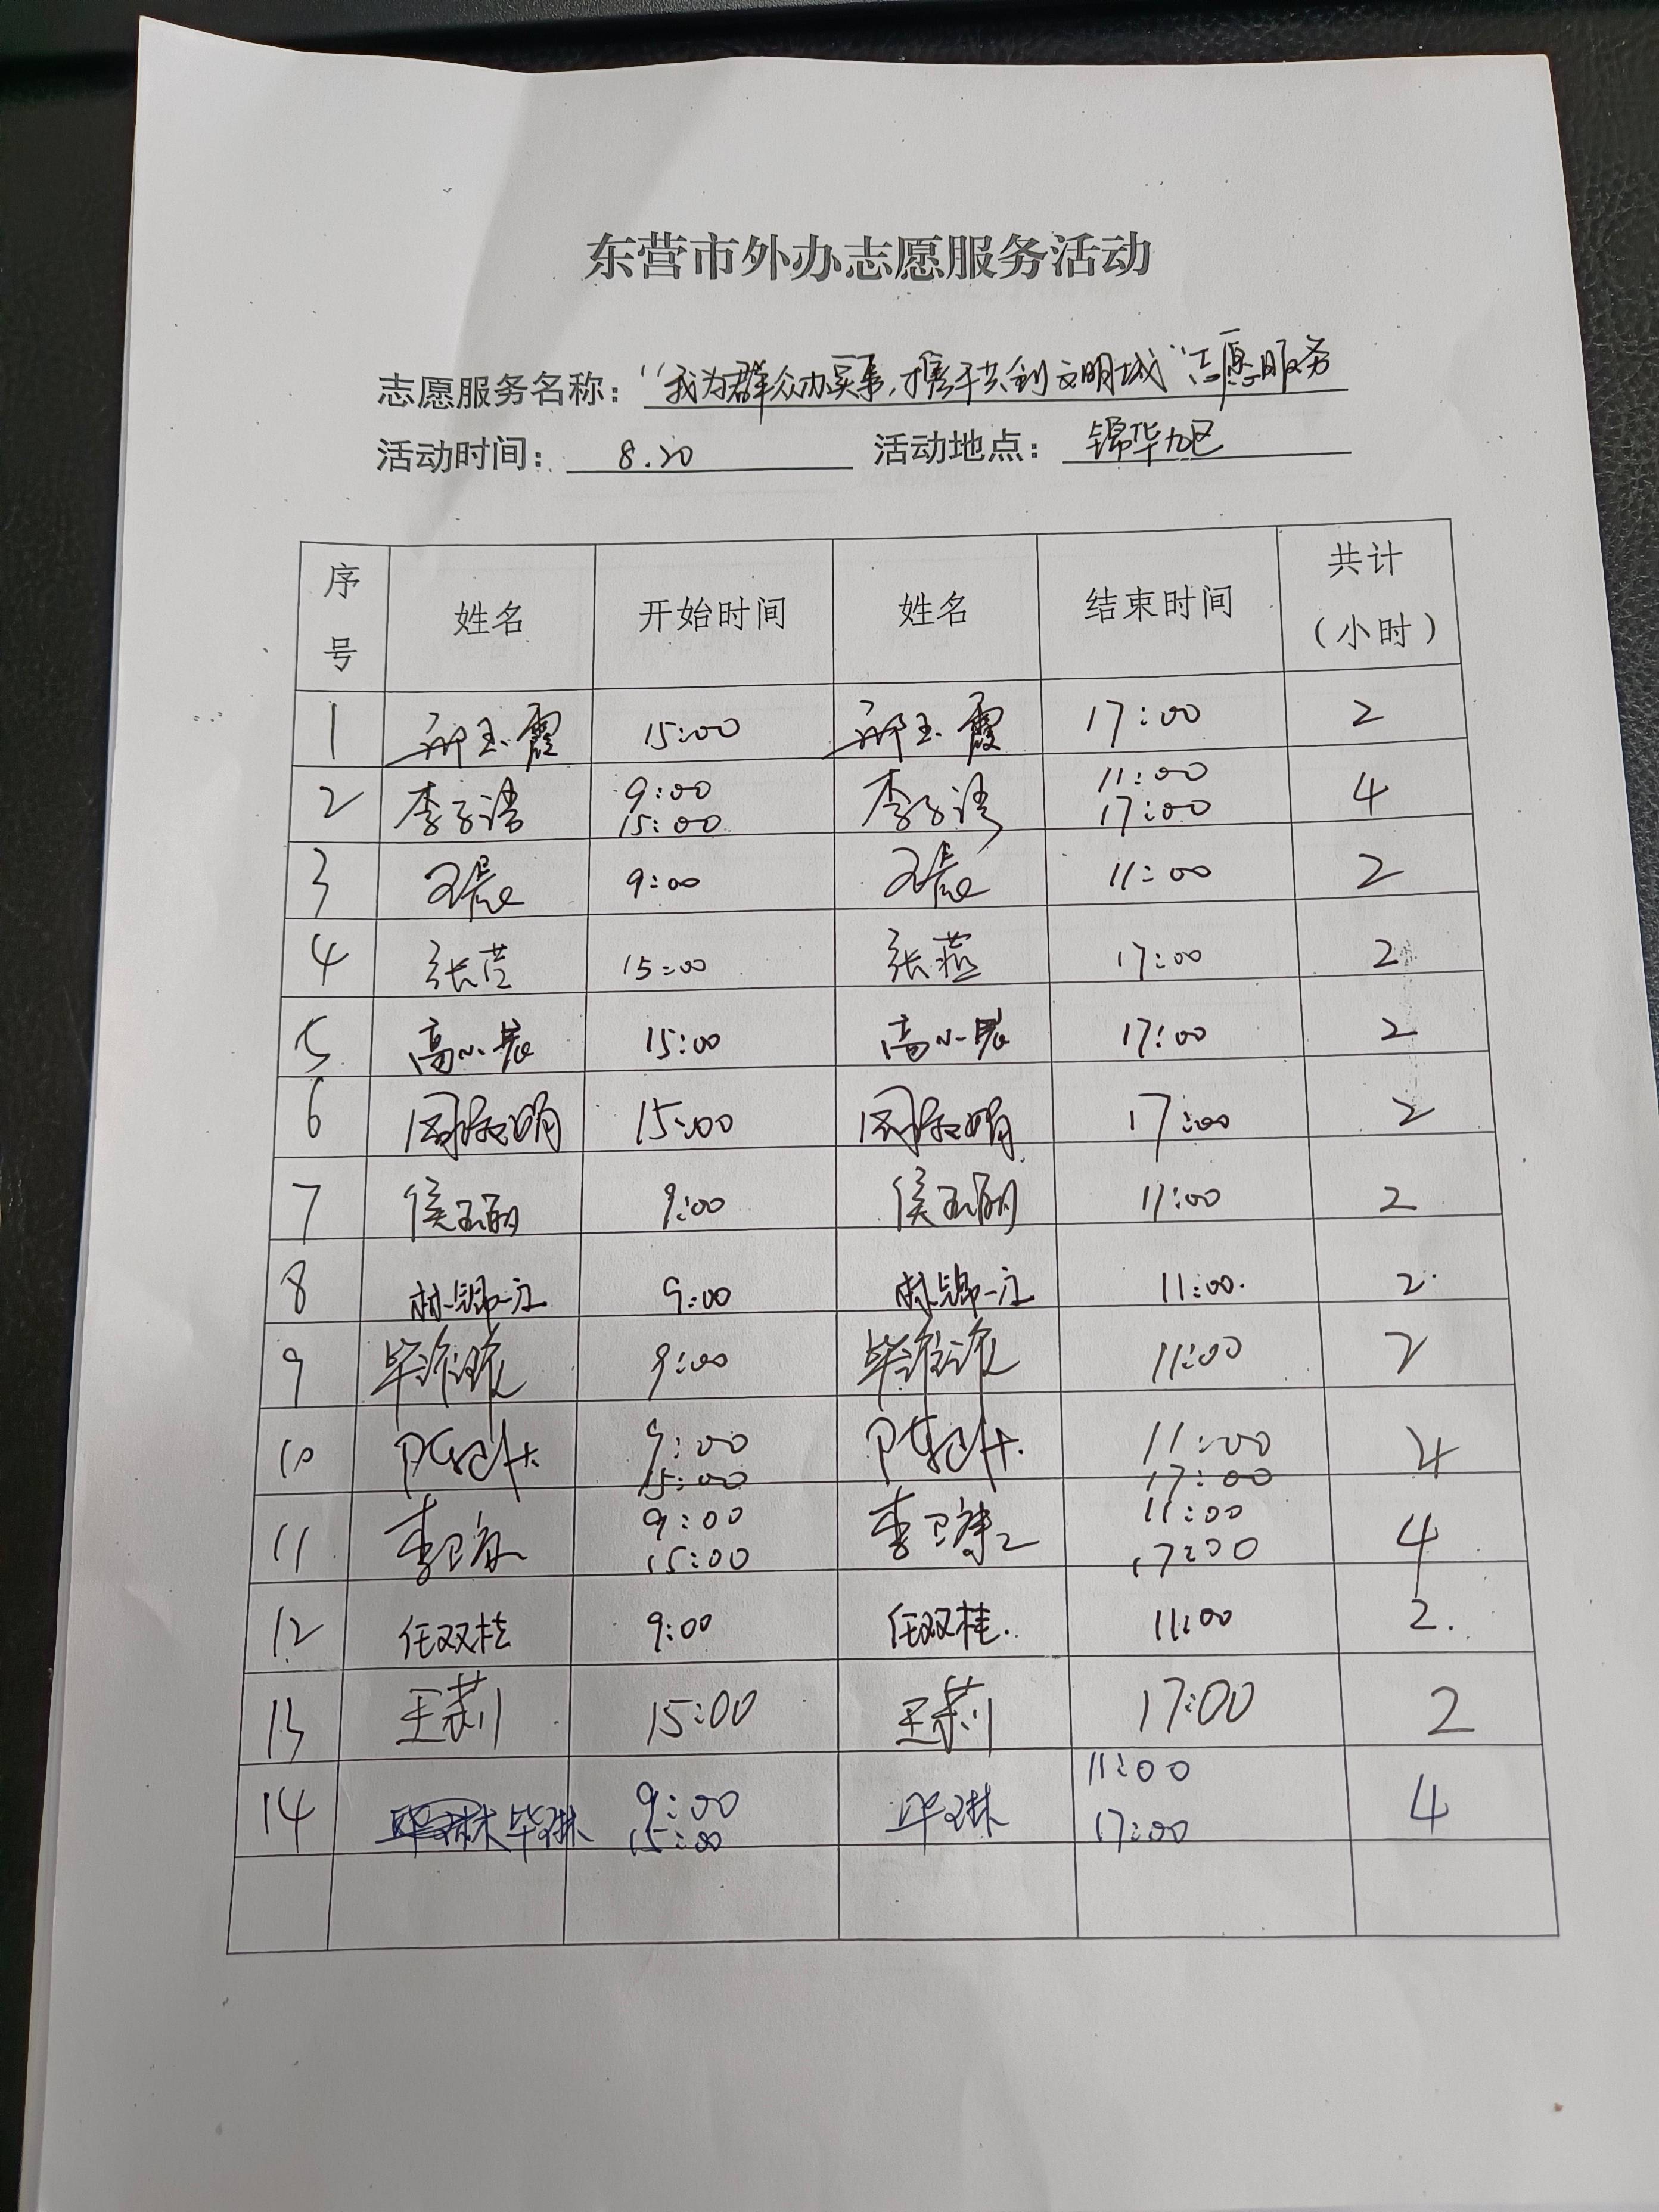 东营市外办志愿服务活动
志愿服务名称：“我为群众办实事，携手共创文明城”志愿服务
活动时间：8.20 活动地点：锦华九区
序号 姓名 开始时间 姓名 结束时间 共计（小时）
1 邢玉霞 15:00 邢玉霞 17:00 2
2 李子诺 9:00 李子诺 11:00 4
15:00 17:00
3 王晨 9:00 王晨 11:00 2
4 张燕 15:00 张燕 17:00 2
5 高小晨 15:00 高小晨 17:00 2
6 15:00 17:00 2
7 侯玉丽 9:00 侯玉丽 11:00 2
8 林锦江 9:00 林锦江 11:00. 2.
9 9:00 11:00 2
10 9:00 11:00 4
15:00 17:00
11 9:00 11:00 4
15:00 17:00
12 任双桂 9:00 任双桂. 11:00 2.
13 王莉 15:00 王莉 17:00 2
14 毕琳 9:00 毕琳 11:00 4
15:00 17:00